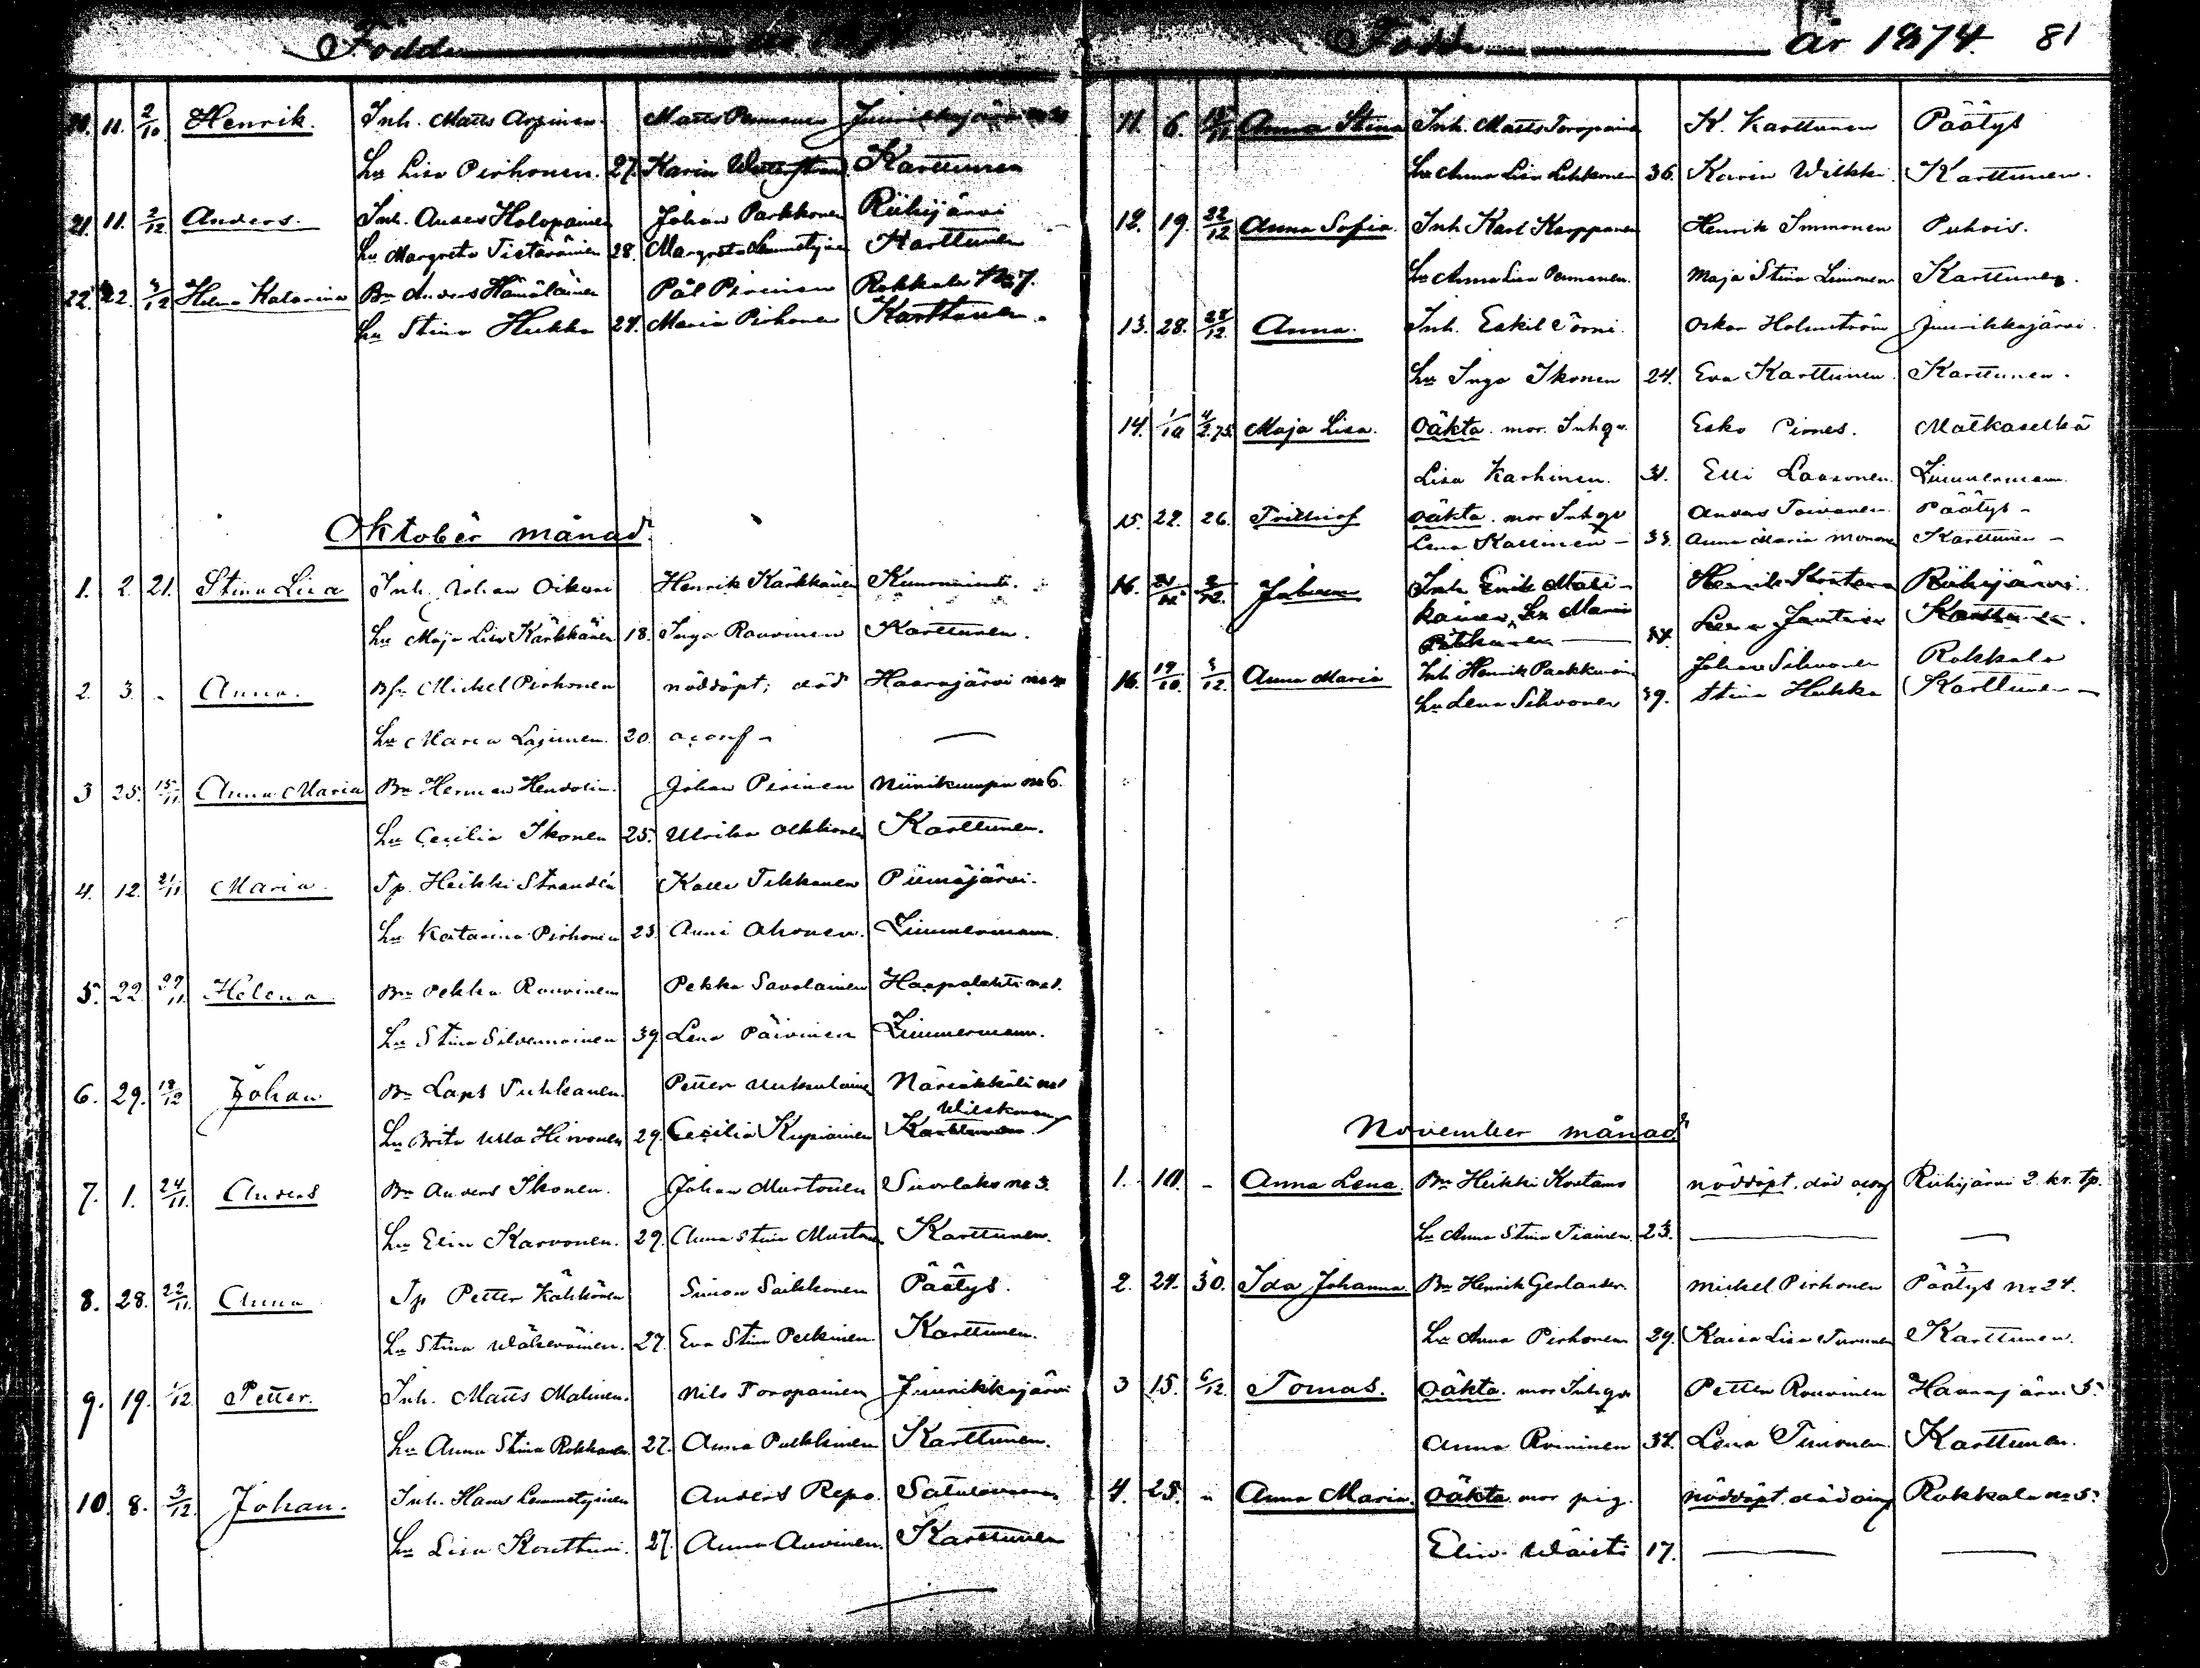 Födde år 1874
20. 11. 2/10 Henrik. Inh. Matts Arpinen Matts Parmanen Juurikkajärvi
Hu Lisa Pirhonen. 27. Karin Karttunen
21. 11. 2/12 Anders. Inh. Anders Holopainen Johan Parkkonen Riihijärvi
Hu Margreta Tietäväinen 28. Margreta Lemmetyinen Karttunen
22. 22. 3/12 Helena Katarina Bn Anders Hämäläinen Pål Pirinen Rokkala No 7.
Hu Stina Hukka 24. Maria Pirhonen Karttunen.
Oktober månad.
1. 2. 21. Stina Lisa Inh. Johan Oikari Henrik Kärkkänen
Hu Maja Lisa Kärkkänen 18. Inga Rouvinen Karttunen.
2. 3. - Anna. Bs. Mickel Pirhonen nöddöpt; död Haarajärvi
Hu Maria Lajunen 20. aconf -
3 25. 15/11 Anna Maria Bn Herman Hendolin. Johan Pirinen Niinikumpu no 6.
Hu Cecilia Ikonen 25. Ulrika Olkkonen Karttunen.
4. 12. 21/11 Maria. Tp. Heikki Strandén Kalle Tikkanen Piimäjärvi.
Hu Katarina Pirhonen 23. Anni Ahonen. Zimmermann.
5. 22. 29/11. Helena. Bn Pekka Rouvinen Pekka Savolainen Haapalahti no 1.
Hu Stina Silvennoinen 39 Lena Päivinen Zimmermann.
6. 29. 13/12 Johan Bn Lars Puhkanen. Petter Närsäkkälä no 1
Wilskman
Hu Brita Ulla Hirvonen 29. Cecilia Kupiainen Karttunen.
7. 1. 24/11. Anders Bn Anders Ikonen. Johan Mustonen Suorlaks no 3.
Hu Elin Karvonen. 29. Anna Stina Muston Karttunen.
8. 28. 22/11. Anna Tp Petter Kähkönen Simon Saikkonen Päätys.
Hu Stina Wäkeväinen. 27. Eva Stina Pulkinen. Karttunen.
9. 19. 1/12 Petter. Inh. Matts Malinen. Nils Toropainen Juurikkajärvi
Hu Anna Stina Rokkanen 27. Anna Pulkkinen Karttunen.
10. 8. 3/12. Johan. Inh. Hans Lemmetyinen Anders Repo. Satulavaara
Hu Lisa Kontturi. 27. Anna Auvinen. Karttunen
Födde år 1874. 81
11. 6. Anna Stina Inh. Matts Toropainen K. Karttunen Päätys
Hu Anna Lisa Lehkonen 36. Karin Wilkki. Karttunen.
12. 19. 22/12 Anna Sofia. Inh Karl Karppanen Henrik Immonen Puhois.
Hu Anna Lisa Parmanen. Maja Stina Limonen Karttunen.
13. 28. 28/12. Anna. Inh. Eskil Törni. Oskar Holmström Juurikkajärvi.
Hu Inga Ikonen 24. Eva Karttunen. Karttunen.
14. 1/10 4/2.75. Maja Lisa. Oäkta. mor. Inhqv. Esko Pirnes. Matkaselkä
Lisa Karhinen. 31. Elli Laasonen. Zimmermann.
15. 27. 26. Frithiof Oäkta. mor Inhqv Anders Toivanen. Päätys -
Lena 33. Anna Maria Mononen Karttunen -
16. Johan Inh. Erik Mati- Henrik Kostamo Riihijärvi.
kainen, Hu Maria Lena Karttunen.
Pitkänen 34.
16. 19/10. 3/12. Anna Maria Inh Henrik Paakkunainen Johan Silvonen Rokkala
Hu Lena Silvonen 39. Stina Hukka Karttunen -
November månad.
1. 10. - Anna Lena. Bn Heikki Kostamo nöddöpt. död aconf Riihijärvi 2. kr. tp.
Hu Anna Stina Tiainen. 23.
2. 24. 30. Ida Johanna. Bn Henrik Gerlander. Mickel Pirhonen Päätys no 24.
Hu Anna Pirhonen 29. Kaisa Lisa Turunen Karttunen.
3 15. 6/12. Tomas. Oäkta. mor Inhqv Petter Rouvinen Haarajärvi 5.
Anna Roininen 37. Lena Timonen. Karttunen.
4. 25. " Anna Maria. Oäkta mor pig. nöddöpt. död Rokkala no 5.
Elin Wäisti 17.